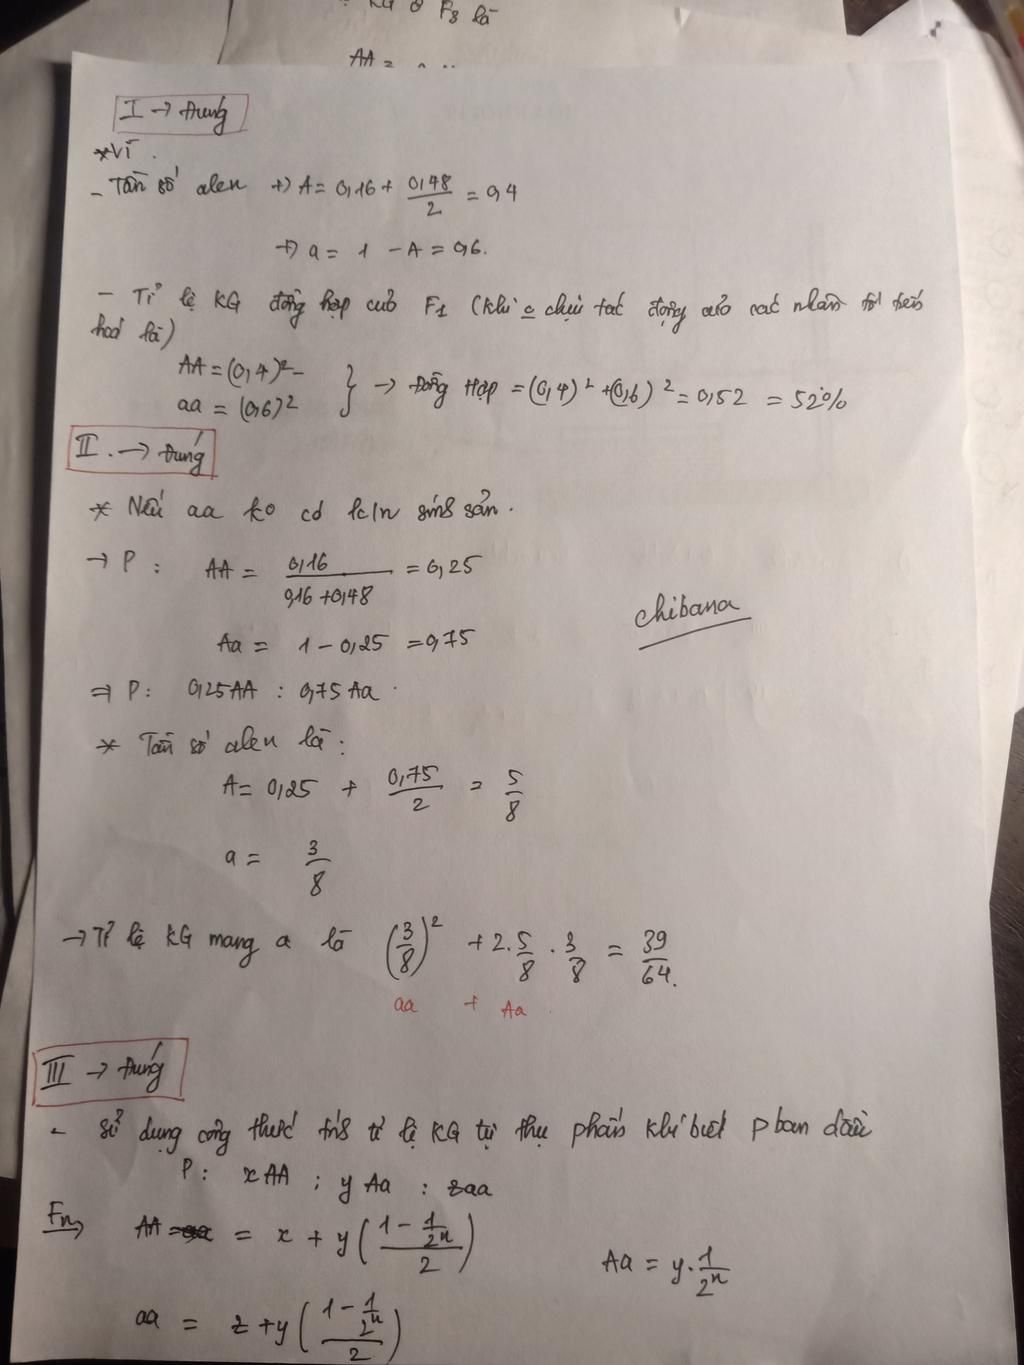 KG ở F3 là
AA =
I → Đúng
* Vì .
- Tần số alen +) A = 0,16 + 0,48/2 = 0,4
+) a = 1 - A = 0,6.
- Tỉ lệ KG đồng hợp của F1 (khi o chịu tác động của các nhân tố tiến
hoá là)
AA = (0,4)²
aa = (0,6)² } → Đồng Hợp = (0,4)² + (0,6)² = 0,52 = 52%
II . → Đúng
* Nếu aa ko có k/n sinh sản .
→ P : AA = 0,16/(0,16 + 0,48) = 0,25
Aa = 1 - 0,25 = 0,75
⇒ P : 0,25AA : 0,75 Aa .
chibana
* Tần số alen là :
A = 0,25 + 0,75/2 = 5/8
a = 3/8
→ Tỉ lệ KG mang a là (3/8)² + 2. 5/8 . 3/8 = 39/64.
aa + Aa .
III → Đúng
- sử dụng công thức tính tỉ lệ KG tự thụ phấn khi biết P ban đầu
P : x AA ; y Aa : zaa
Fn AA = x + y ( (1 - 1/2ⁿ)/2 ) Aa = y. 1/2ⁿ
aa = z + y ( (1 - 1/2ⁿ)/2 )